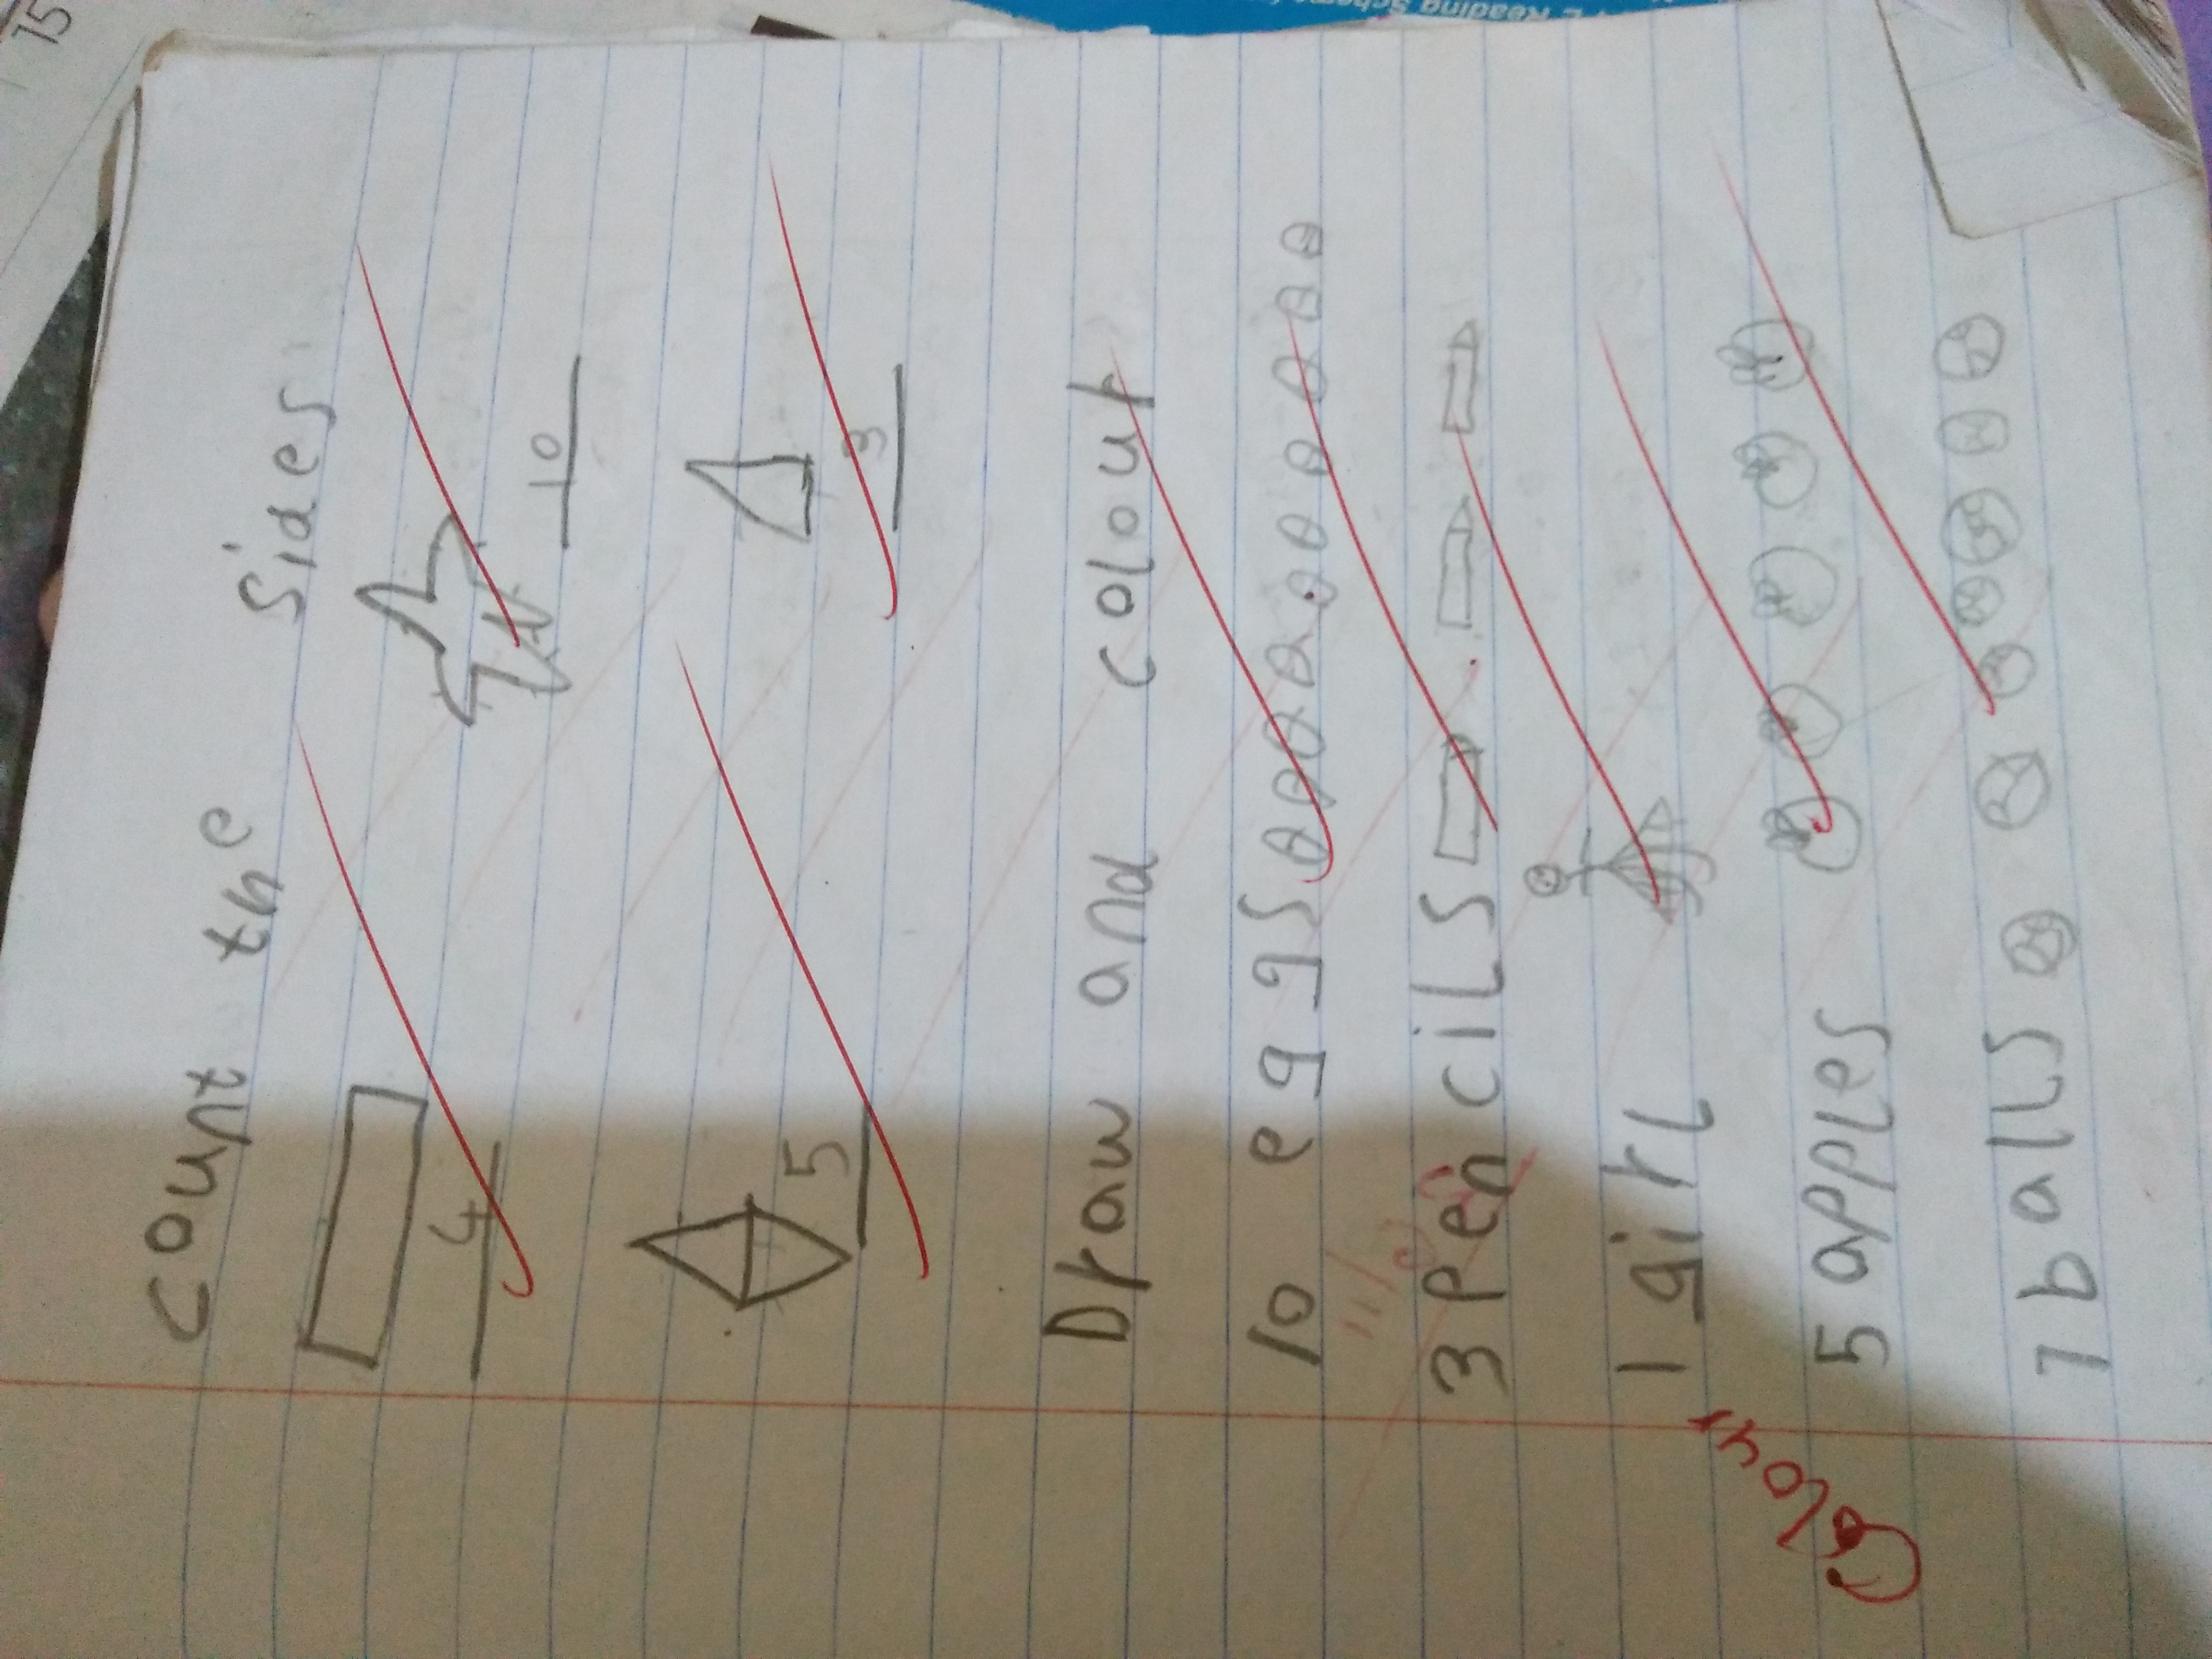 Count the Sides
4 10
5 3
Draw and colour
10 eggs
3 pencils
1 girl
5 apples
7 balls
Colour
15
Reading Scheme